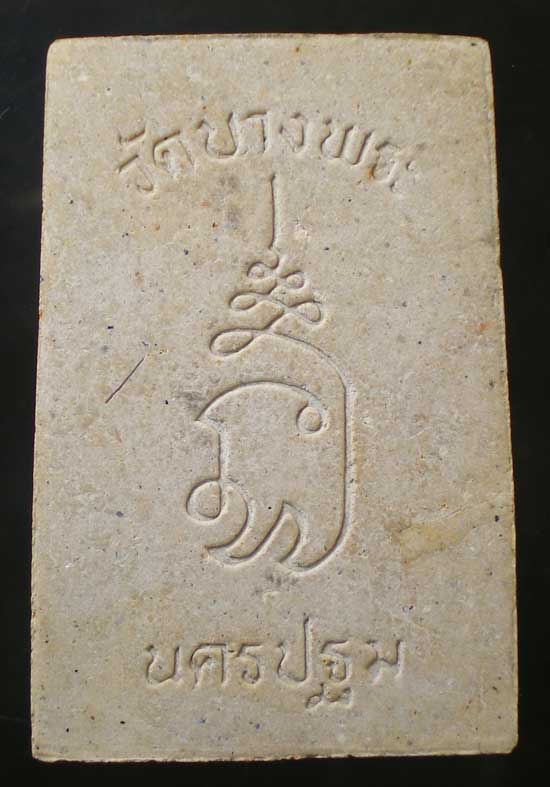 วัดบางพระ
นครปฐม